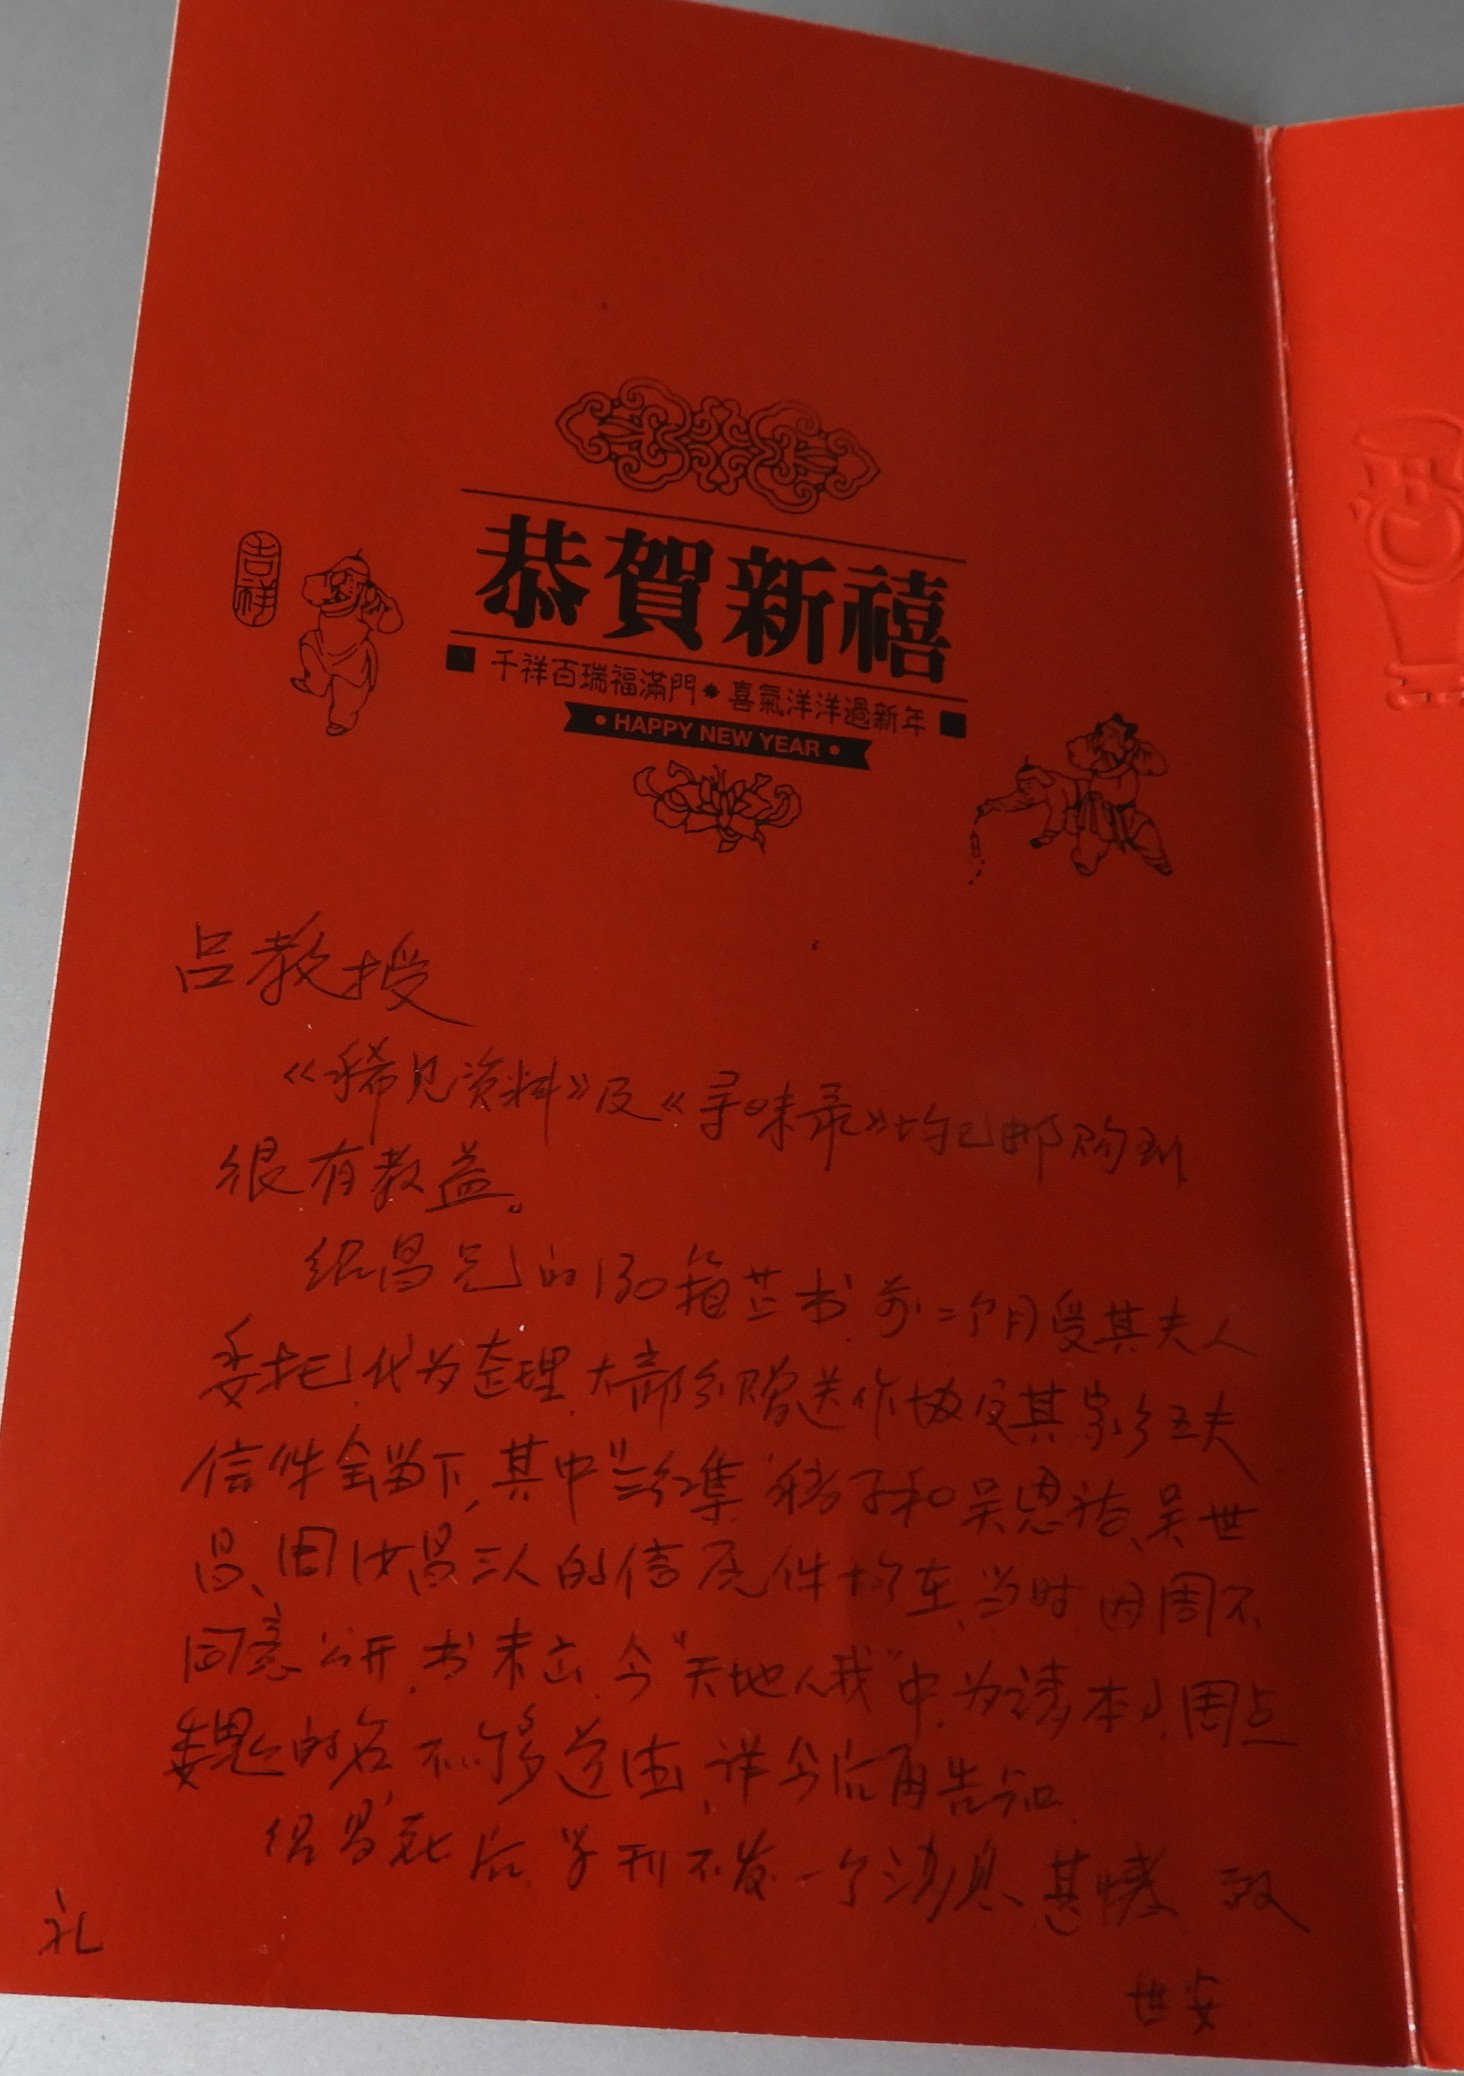 吉祥
恭賀新禧
千祥百瑞福滿門 喜氣洋洋過新年
HAPPY NEW YEAR
吕教授
《稀见资料》及《寻味录》均已邮购到
很有教益。
绍昌兄的130箱 书,前二个月受其夫人
委托,代为整理,大部分赠送作协及其家乡
信件全留下,其中"三红集"稿子和吴恩裕、吴世
昌、周汝昌三人的信 件均在,当时因周不
同意公开,书未出,今"天地人我"中,为读本了,周
的名,不够道德,详 后再告知.
绍昌死后,学刊不发一个消息,甚憾 致
礼
世安